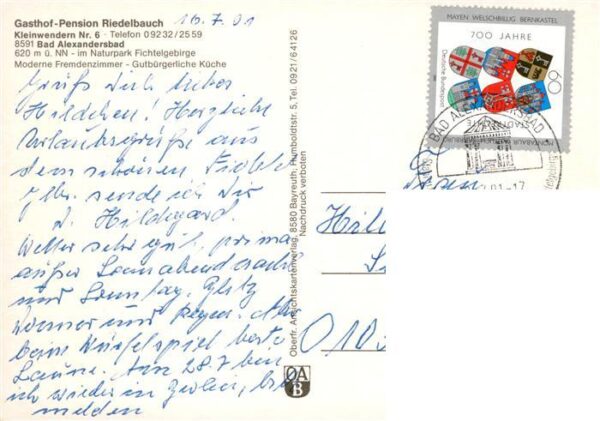 Gasthof-Pension Riedelbauch
Kleinwendern Nr. 6 · Telefon 0 92 32 / 25 59
8591 Bad Alexandersbad
620 m ü. NN - im Naturpark Fichtelgebirge
Moderne Fremdenzimmer - Gutbürgerliche Küche
16.7.91
Gruß Dich liebes
Hildchen! Herzliche
Urlaubsgrüße aus
dem schönen Fichtel
gbr. sende ich Dir
D. Hildegard.
Wetter sehr gut, prima
außer Sonnabend nach
und Sonntag. Blitz
Donner und Regen.
beim Würfelspiel beste
Laune. Am 28.7 bin
ich wieder in Berlin,
melden
Oberfr. Ansichtskartenverlag, 8580 Bayreuth, Humboldtstr. 5, Tel. 09 21/6 41 26
Nachdruck verboten
OAB
MAYEN WELSCHBILLIG BERNKASTEL
700 JAHRE
Deutsche Bundespost
60
STADTRECHTE
MONTABAUR
BAD ALEXANDERSBAD
91-17
Frau
010